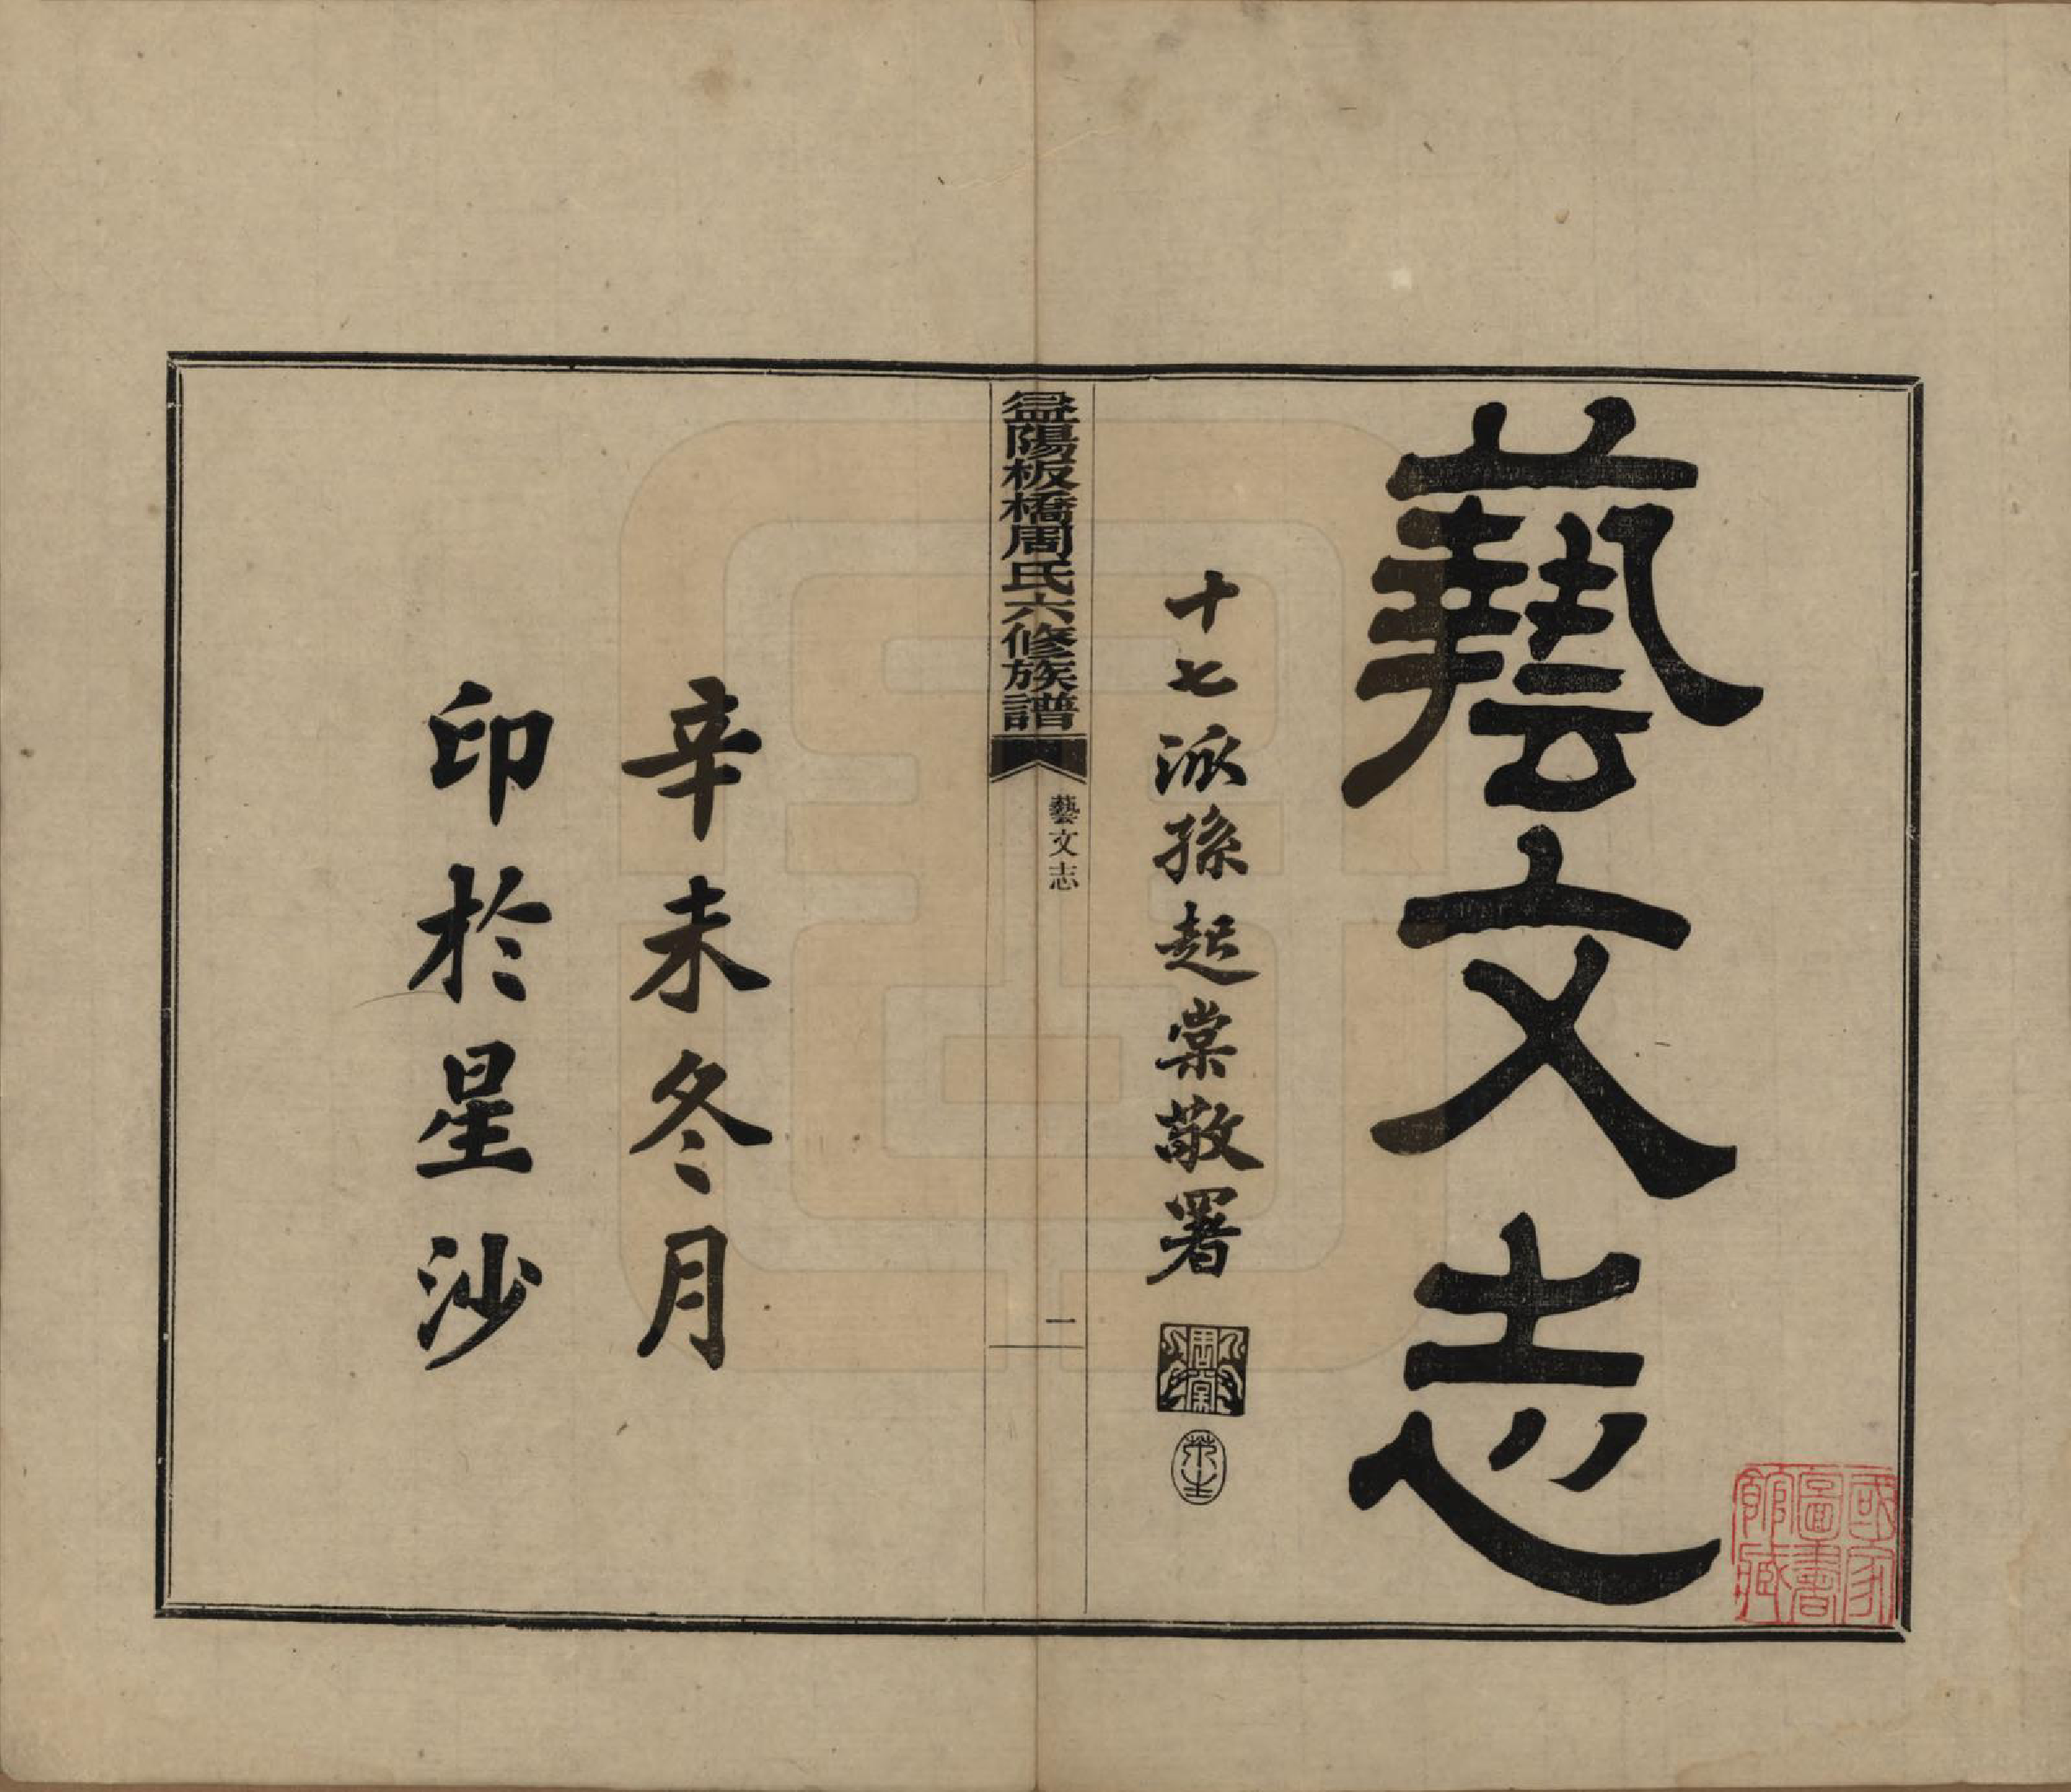 藝文志
十七派孫起棠敬署
益陽板橋周氏六修族譜
藝文志
一
辛未冬月
印於星沙
國家
圖書
館藏